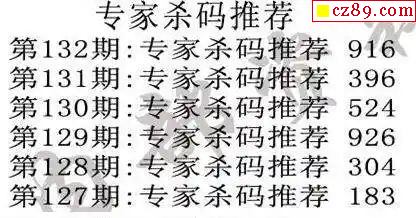 专家杀码推荐
cz89.com
第132期:专家杀码推荐 916
第131期:专家杀码推荐 396
第130期:专家杀码推荐 524
第129期:专家杀码推荐 926
第128期:专家杀码推荐 304
第127期:专家杀码推荐 183